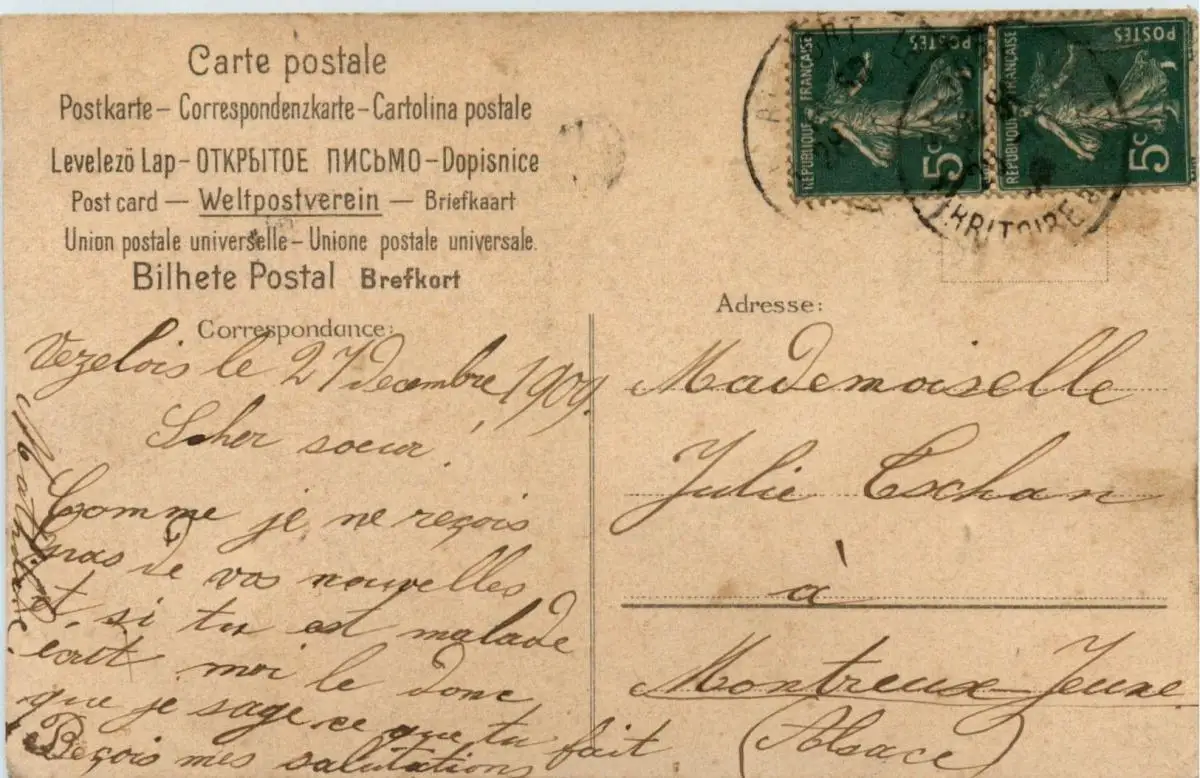 Carte postale
Postkarte – Correspondenzkarte – Cartolina postale
Levelezö Lap – ОТКРЫТОЕ ПИСЬМО – Dopisnice
Post card — Weltpostverein — Briefkaart
Union postale universelle – Unione postale universale.
Bilhete Postal Brefkort
Correspondance:
Vezelois le 27 decembre 1909.
Scher soeur!
Comme je ne reçois
pas de vos nouvelles
et si tu est malade
ecrit moi le donc
que je sage ce que tu
fait
Reçois mes salutations
Mathilde
Adresse:
Mademoiselle
Julie Eschan
à
Montreux-Jeune
(Alsace)
RÉPUBLIQUE FRANÇAISE
POSTES
5c
RÉPUBLIQUE FRANÇAISE
POSTES
5c
TERRITOIRE